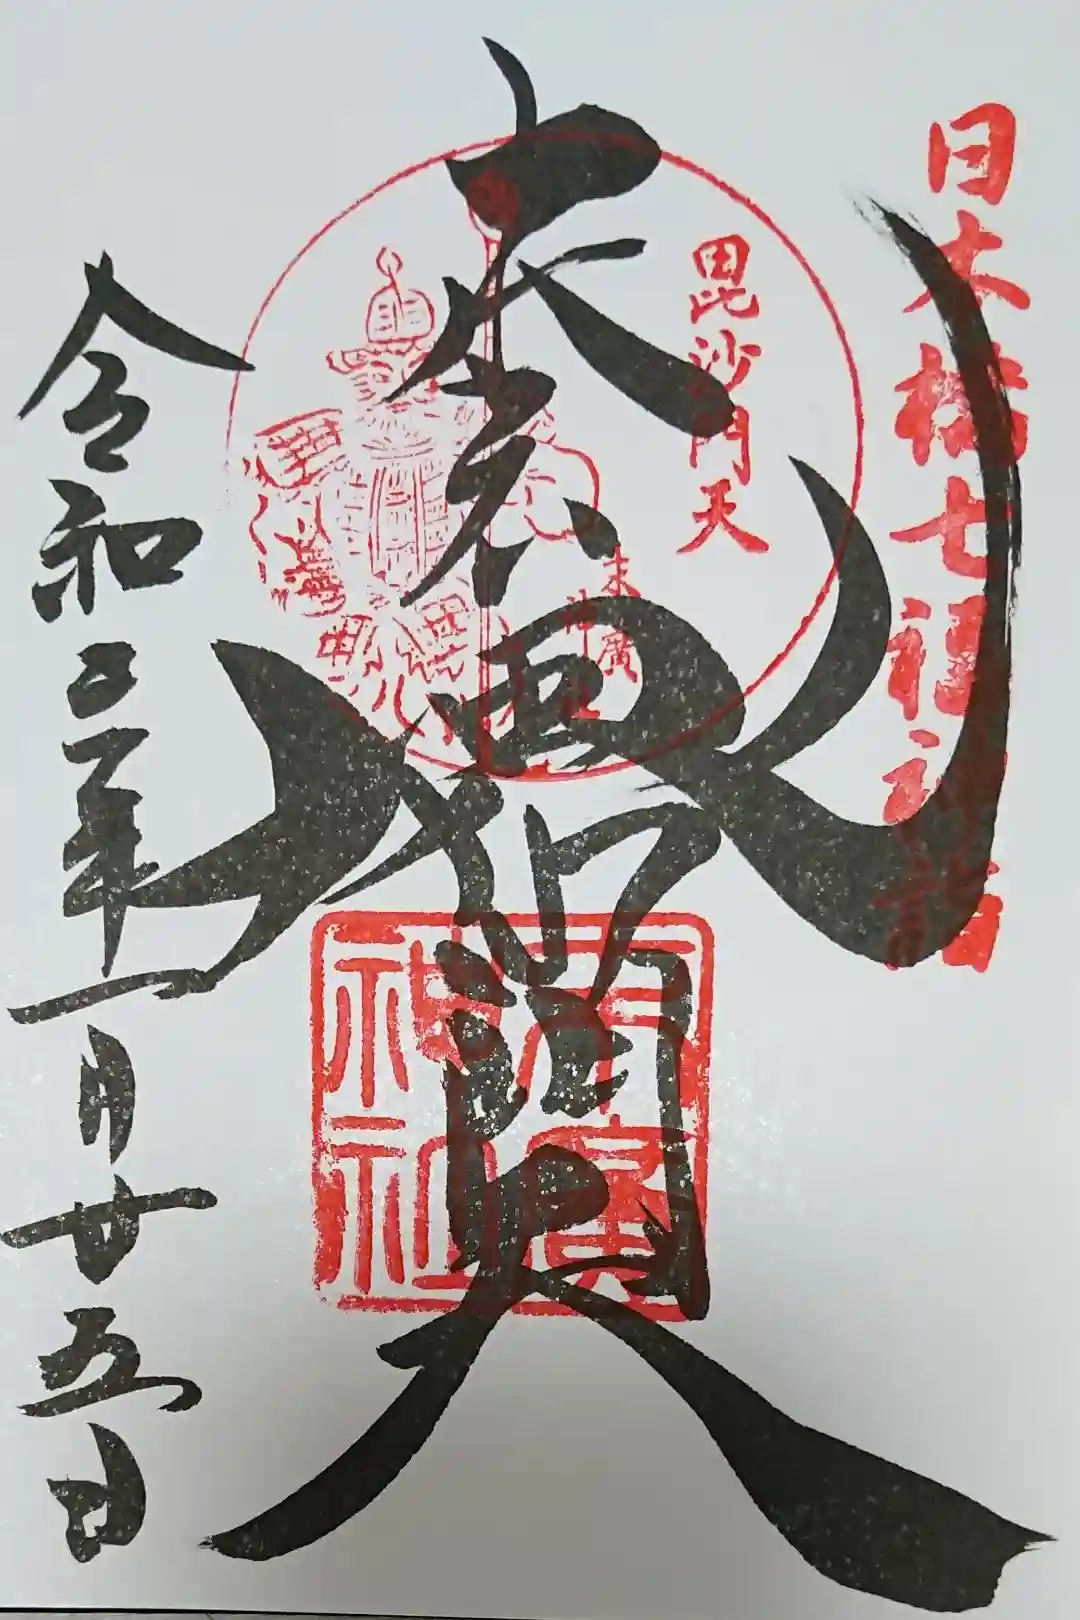 日本橋七福神詣
毘沙門天
末廣
神社
毘沙門天
末廣
神社
令和三年一月廿五日